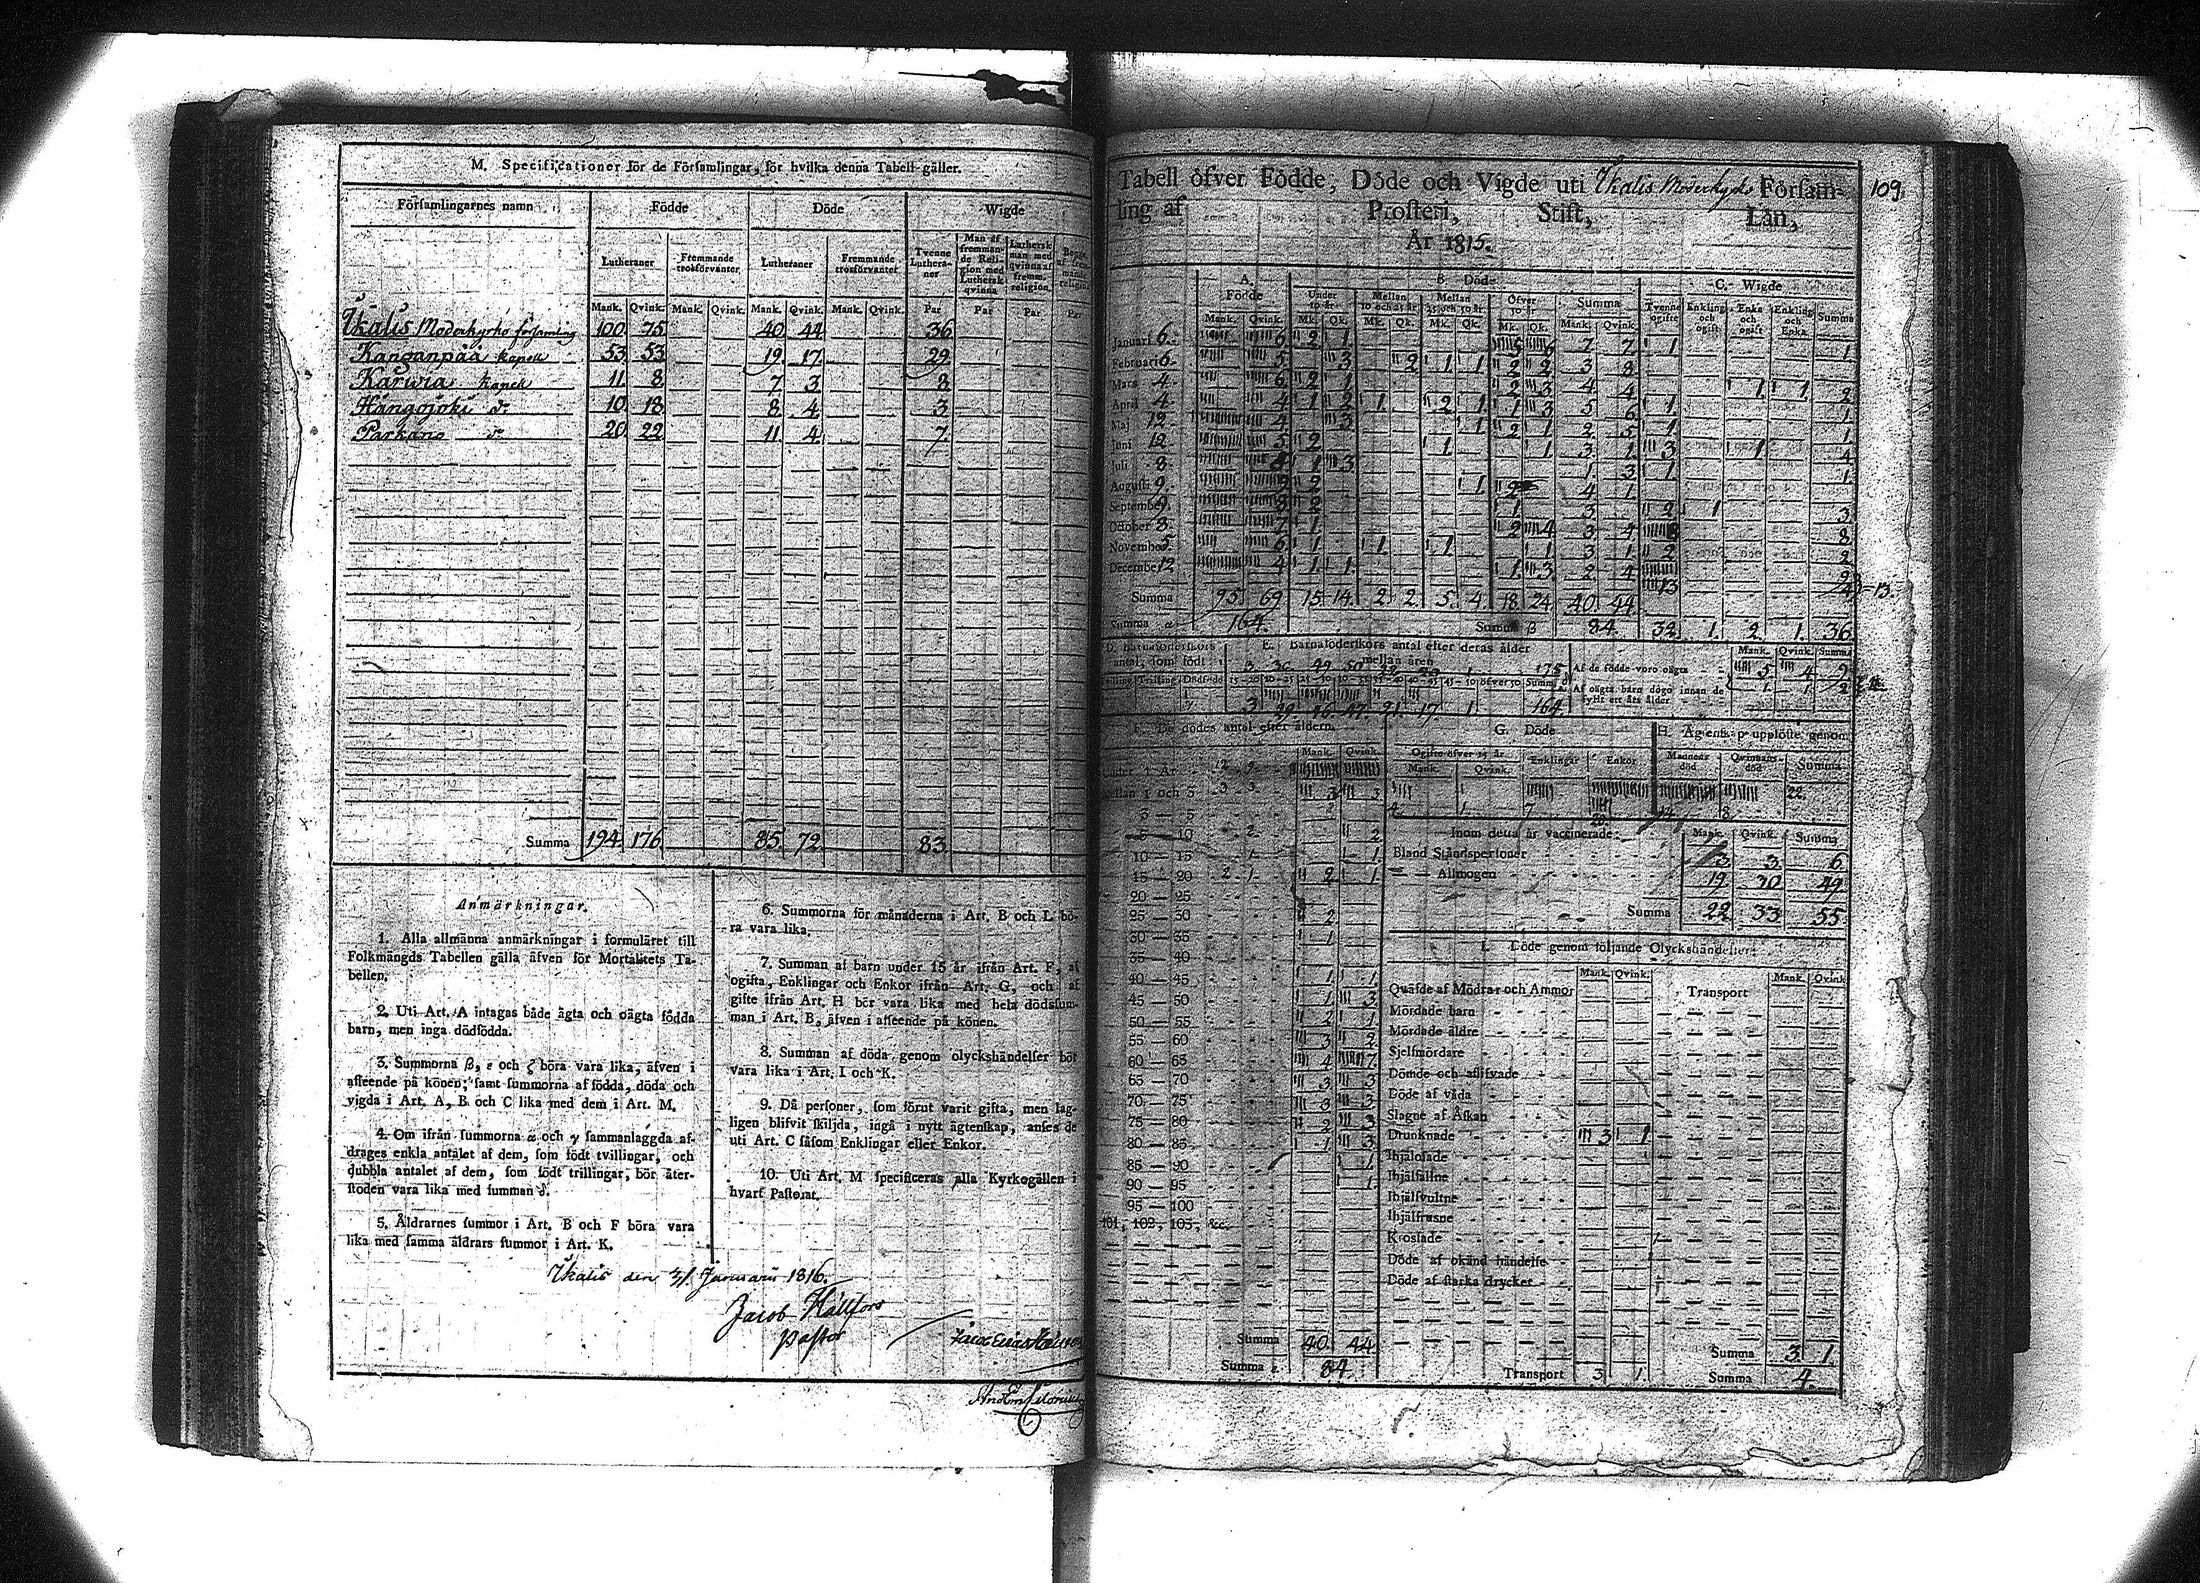 M. Specificationer för de Församlingar, för hvilka denna Tabell gäller.
Församlingarnes namn Födde Döde Wigde
Lutheraner Fremmande trosförvanter Lutheraner Fremmande trosförvanter Tvenne Lutheraner Man af fremmande Religion med Luthersk qvinna Luthersk man med qvinna af fremm. religion
Mank. Qvink. Mank. Qvink. Mank. Qvink. Mank. Qvink. Par Par Par Par
Ikalis Moderkyrko församling 100 75 40 44 36
Kanganpää kapell 53 53 19 17 29
Karwia kapell 11 8 7 3 8
Hångojoki d:o 10 18 8 4 3
Parkano d:o 20 22 11 4 7
Summa 194 176 85 72 83
Anmärkningar.
1. Alla allmänna anmärkningar i formuläret till
Folkmängds Tabellen gälla äfven för Mortalitets Ta-
bellen.
2. Uti Art. A intagas både ägta och oägta födda
barn, men inga dödfödda.
3. Summorna β, ε och ζ böra vara lika, äfven i
afseende på könen; samt summorna af födda, döda och
vigda i Art. A, B och C lika med dem i Art. M.
4. Om ifrån summorna α och γ sammanlaggda af-
drages enkla antalet af dem, som födt tvillingar, och
dubbla antalet af dem, som födt trillingar, bör åter-
stoden vara lika med summan δ.
5. Åldrarnes summor i Art. B och F böra vara
lika med samma åldrars summor i Art. K.
6. Summorna för månaderna i Art. B och L bö-
ra vara lika.
7. Summan af barn under 15 år ifrån Art. F, af
ogifta, Enklingar och Enkor ifrån Art. G, och af
gifte ifrån Art. H bör vara lika med hela dödssum-
man i Art. B, äfven i afseende på könen.
8. Summan af döda genom olyckshändelser bör
vara lika i Art. I och K.
9. Då personer, som förut varit gifta, men lag-
ligen blifvit skiljda, ingå i nytt ägtenskap, anses de
uti Art. C såsom Enklingar eller Enkor.
10. Uti Art. M specificeras alla Kyrkogällen i
hvart Pastorat.
Ikalis den 31 Januarii 1816.
Jacob Hällfors
Pastor
Tabell öfver Födde, Döde och Vigde uti Ikalis Moderkyrko Försam- 109
ling af Prosteri, Stift, Län,
År 1815.
A. Födde B. Döde C. Wigde
Under 10 år Mellan 10 och 25 år Mellan 25 och 50 år Öfver 50 år Summa Tvenne ogifte Enkling och ogift Enka och ogift Enkling och Enka Summa
Januari 6 6 2 1 5 6 7 7 1 1
Februari 6 5 3 2 1 1 2 2 3 8
Mars 4 6 2 1 2 3 4 4 1 1 2
April 4 4 1 2 1 2 1 1 3 5 6 1 1
Maj 12 4 3 1 2 1 2 5 1 1
Juni 12 5 2 1 1 3 1 3 1 4
Juli 8 8 1 3 1 3 1 1
Augusti 9 2 1 2 4 1
September 9 8 2 1 3 2 1 3
October 8 7 1 2 4 3 4 8 8
November 5 6 1 1 1 1 3 1 2 2
December 12 4 1 1 1 3 2 4 13 =13.
Summa 95 69 15 14 2 2 5 4 18 24 40 44
Summa α 164. Summa β 84. 32 1 2 1 36
D. Barnaföderskors antal, som födt E. Barnaföderskors antal efter deras ålder mellan åren
Tvilling Trilling Dödfödd 15-20 20-25 25-30 30-35 35-40 40-45 45-50 öfver 50 Summa δ
3 47 21 17 1 164.
Mank. Qvink. Summa
Af de födde voro oägta 5 4 9
Af oägta barn dögo innan de fyllt ett års ålder 1 1 2
F. De dödes antal efter åldern. G. Döde H. Ägtenskap upplöste genom
Mank. Qvink. Ogifte öfver 15 år Enklingar Enkor Mannens död Qvinnans död Summa
Under 1 År 12 9
Mellan 1 och 3 3 3
3 — 5
5 — 10 2
10 — 15 1
15 — 20 2 1
20 — 25
25 — 30 2
30 — 35 1
35 — 40
40 — 45 1 1
45 — 50 1 3
50 — 55 2 1
55 — 60 3 2
60 — 65 4 7
65 — 70 3 3
70 — 75 3 3
75 — 80 2 3
80 — 85 1 3
85 — 90 1
90 — 95 1
95 — 100
101, 102, 103, &c.
Summa 40 44
Summa ε 84.
4 1 7 20 14 8 22
Inom detta år vaccinerade: Mank. Qvink. Summa
Bland Ståndspersoner 3 3 6
— — Allmogen 19 30 49
Summa 22 33 55
I. Döde genom följande Olyckshändelser:
Mank. Qvink. Transport Mank. Qvink.
Quäfde af Mödrar och Ammor
Mördade barn
Mördade äldre
Sjelfmördare
Dömde och aflifvade
Döde af våda
Slagne af Åskan
Drunknade 3 1
Ihjälosade
Ihjälfallne
Ihjälsvultne
Ihjälfrusne
Krossade
Döde af okänd händelse
Döde af starka drycker
Summa 3 1
Transport 3 1 Summa 4.